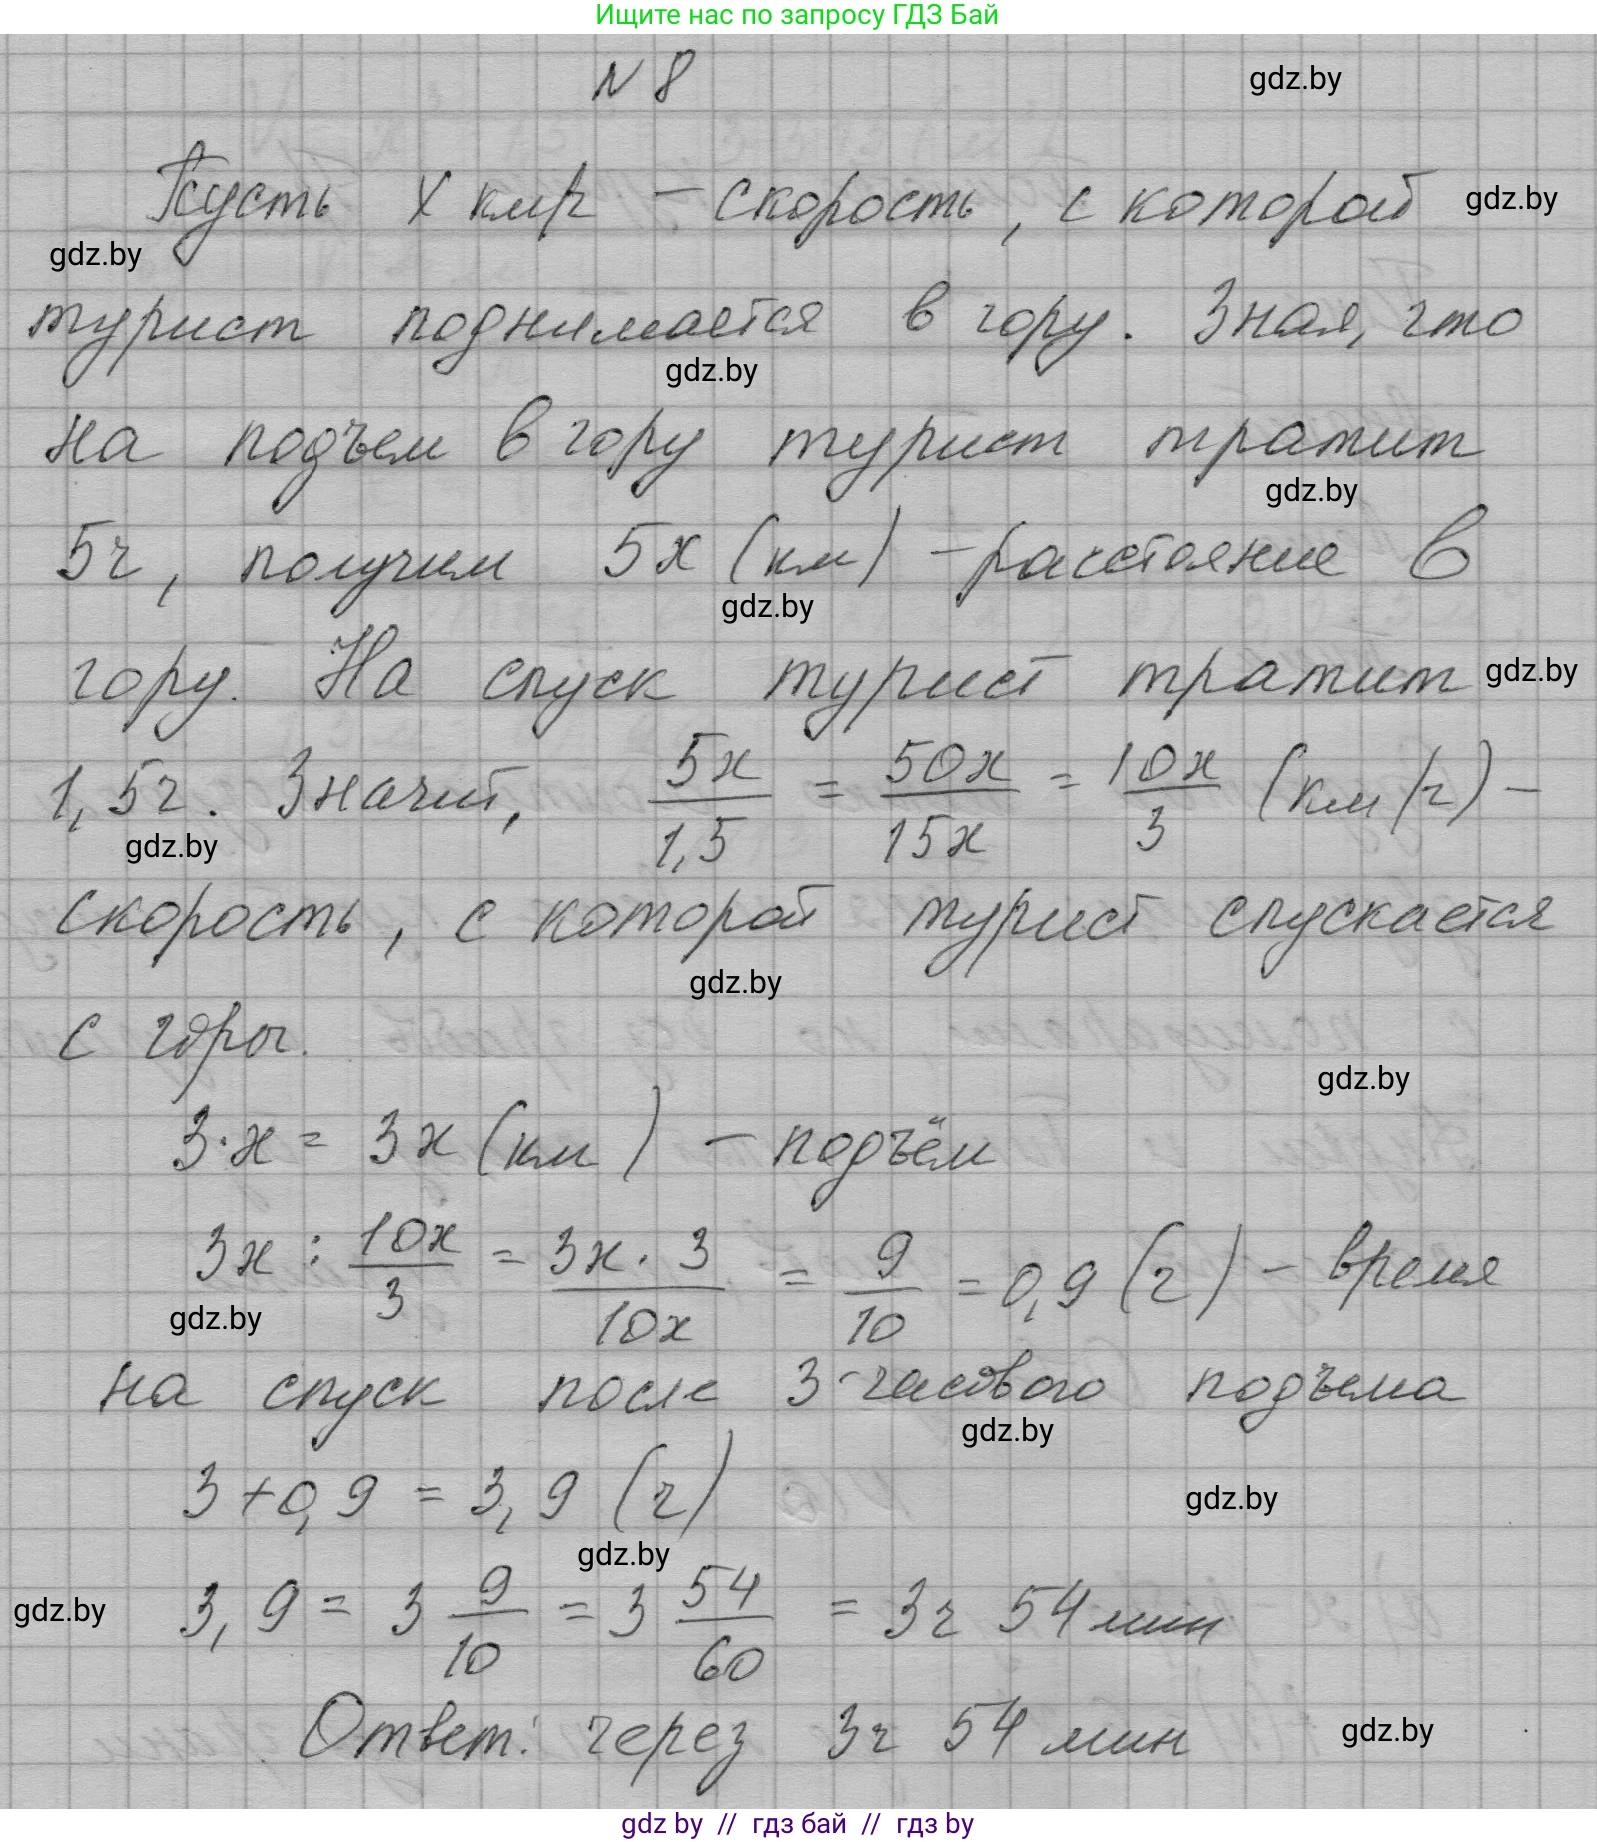 Ищите нас по запросу ГДЗ Бай
N 8
gdz.by
Пусть x км/г – скорость, с которой
gdz.by
gdz.by
турист поднимается в гору. Зная, что
gdz.by
на подъем в гору турист тратит
gdz.by
5ч, получим 5x (км) – расстояние в
gdz.by
гору. На спуск турист тратит
gdz.by
1,5ч. Значит, 5x/1,5 = 50x/15x = 10x/3 (км/ч) –
gdz.by
скорость, с которой турист спускается
gdz.by
с горы.
gdz.by
3·x = 3x (км) – подъём
3x : 10x/3 = 3x·3/10x = 9/10 = 0,9 (ч) – время
gdz.by
на спуск после 3-часового подъема
gdz.by
3+0,9 = 3,9 (ч)
gdz.by
gdz.by
3,9 = 3 9/10 = 3 54/60 = 3ч 54 мин
gdz.by
Ответ: через 3ч 54 мин
gdz.by
gdz by // гдз бай // гдз by